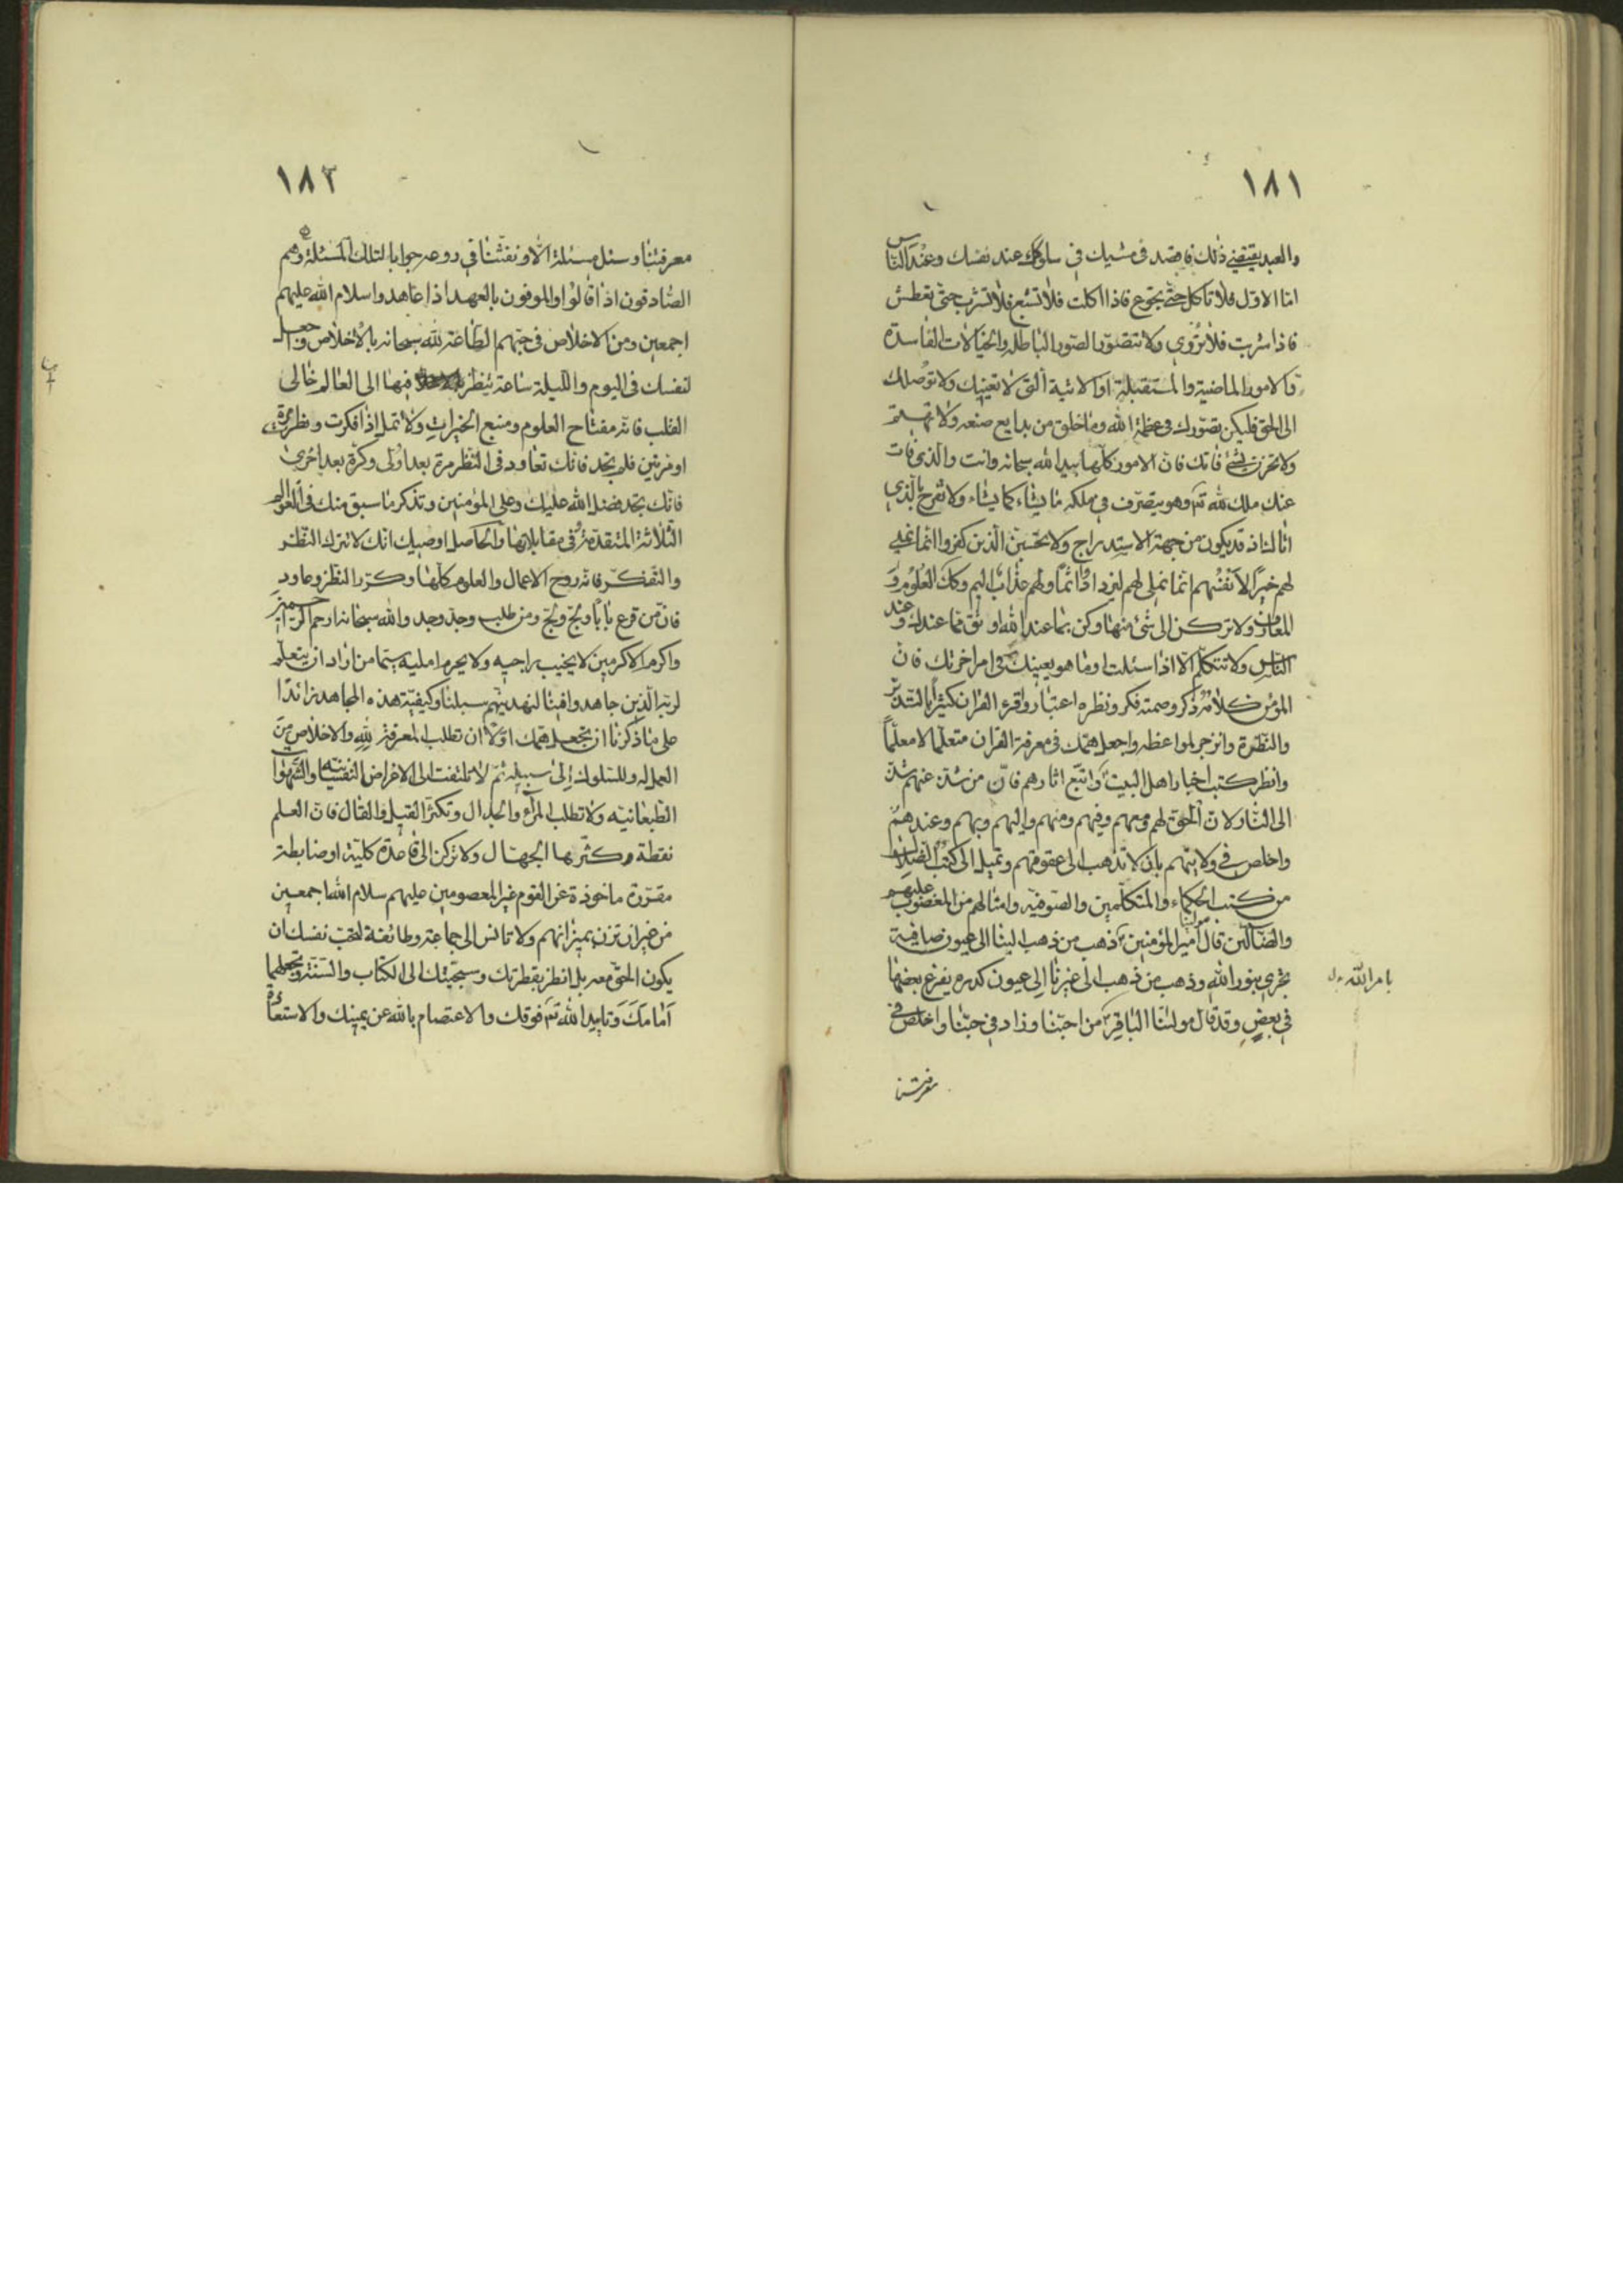 ١٨١
والعبد يقتضي ذلك فاقصد في مشيك في سلوكك عند نفسك وعند الناس
اما الاول فلا تاكل حتى تجوع فاذا اكلت فلا تشبع فلا تشرب حتى تعطش
فاذا شربت فلا تروي ولا تتصور الصور الباطلة والخيالات الفاسدة
والامور الماضية والمستقبلة او الاتية التي لا تعينك ولا توصلك
الى الحق فليكن تصورك في عظمة الله وما خلق من بدايع صنعه ولا تهتم
ولا تحزن لشئ فاتك فان الامور كلها بيد الله سبحانه وانت والذي فات
عنك ملك لله تع وهو يتصرف في ملكه ما يشاء كما يشاء ولا تفرح بالذي
اتاك اذ قد يكون من جهة الاستدراج ولا يحسبن الذين كفروا انما نملي
لهم خيرا لانفسهم انما نملي لهم ليزدادوا اثما ولهم عذاب اليم وكك العلوم و
المعارف ولا تركن الى شئ منها وكن بما عند الله اوثق مما عندك وعند
الناس ولا تتكلم الا اذا سئلت او ما هو يعينك في امر اخرتك فان
المؤمن كلامه ذكر وصمته فكر ونظره اعتبار واقرء القران كثيرا بالتدبر
والنظرة وانزجر بمواعظه واجعل همك في معرفة القران متعلما لا معلما
وانظر كتب اخبار اهل البيت ع واتبع اثارهم فان من شذ عنهم شذ
الى النار لان الحق لهم ومعهم وفيهم ومنهم واليهم وبهم وعندهم
واخلص في ولايتهم بان لا تذهب الى عقوقهم وتميل الى كتب الضلال
من كتب الحكماء والمتكلمين والصوفية وامثالهم من المغضوب عليهم
والضالين قال مولنا امير المؤمنين ع ذهب من ذهب الينا الى عيون صافية
تجري بنور الله وذهب من ذهب الى غيرنا الى عيون كدرة يفرغ بعضها
بامر الله
في بعض وقد قال مولنا الباقر ع من احبنا وزاد في حبنا واخلص في
معرفتنا
١٨٣
معرفتنا وسئل مسئلة الا ونفثنا في روعه جوابا لتلك المسئلة وهم
الصادقون اذا قالوا والموفون بالعهد اذا عاهدوا سلام الله عليهم
اجمعين ومن الاخلاص في حبهم الطاعة لله سبحانه بالاخلاص واجعل
لنفسك في اليوم والليلة ساعة ينظر فيها الى العالم خالي
القلب فانه مفتاح العلوم ومنبع الخيرات ولا تمل اذا فكرت ونظرت مرة
او مرتين فلم تجد فانك تعاود في النظر مرة بعد اولى وكرة بعد اخرى
فانك تجد فضل الله عليك وعلى المؤمنين وتذكر ما سبق منك في العوالم
الثلاثة المتقدمة في مقابلاتها والحاصل اوصيك انك لا تترك النظر
والتفكر فانه روح الاعمال والعلوم كلها وكرر النظر وعاود
فان من قرع بابا ولج ولج ومن طلب وجد وجد والله سبحانه ارحم الراحمين
واكرم الاكرمين لا يخيب راجيه ولا يحرم امليه سيما من اراد ان يتعلم
لربه الذين جاهدوا فينا لنهدينهم سبلنا وكيفية هذه المجاهدة زائدا
على ما ذكرنا ان تجعل همك اولا ان تطلب المعرفة لله والاخلاص من
العمل له وللسلوك الى سبيله ثم لا تلتفت الى الاغراض النفسانية والشهوات
الطبعانية ولا تطلب المراء والجدال وتكثر القيل والقال فان العلم
نقطة وكثرها الجهال ولا تركن الى قاعدة كلية او ضابطة
مقررة ماخوذة عن القوم غير المعصومين عليهم سلام الله اجمعين
من غير ان تزن بميزانهم ولا تانس الى جماعة وطائفة لتحب نفسك ان
يكون الحق معه بل انظر بفطرتك وسجيتك الى الكتاب والسنة وتجعلهما
امامك وتاييد الله تع فوقك والاعتصام بالله عن يمينك والاستعاذة